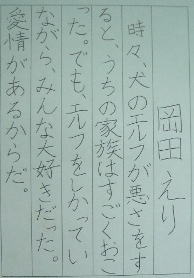 岡田 えり
時々、犬のエルフが悪さをす
ると、うちの家族はすごくおこ
った。でも、エルフをしかってい
ながら、みんな大好きだった。
愛情があるからだ。